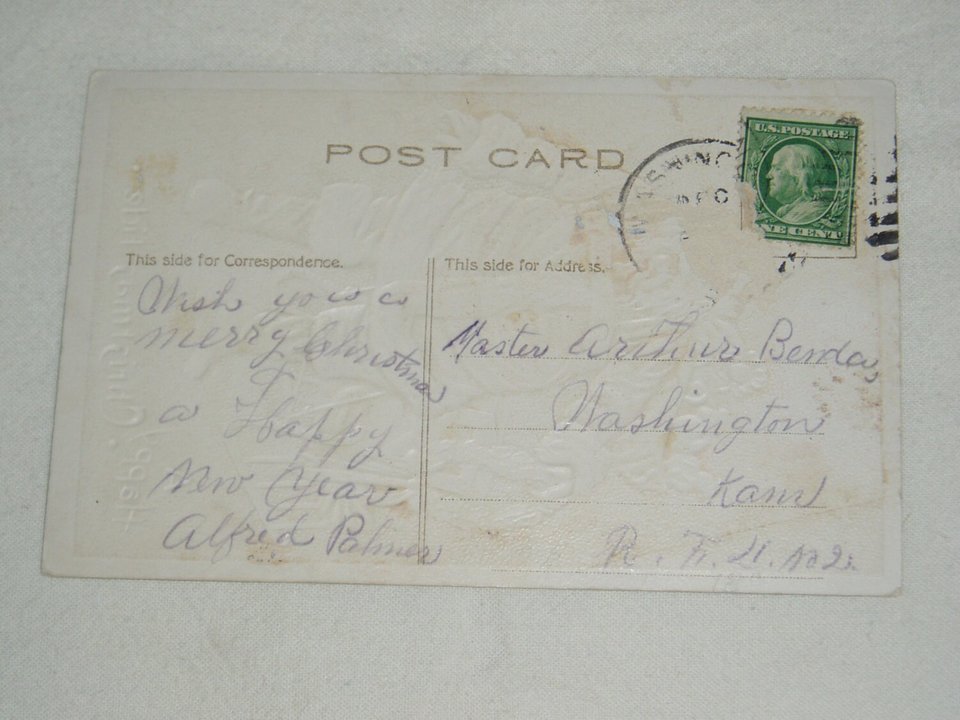 POST CARD
U.S. POSTAGE
WASHING
DEC
ONE CENT
This side for Correspondence.
This side for Address.
Wish you a
merry Christmas
a Happy
New Year
Alfred Palmer
Master Arthur Bender
Washington
Kans
R. F. D. No 2.